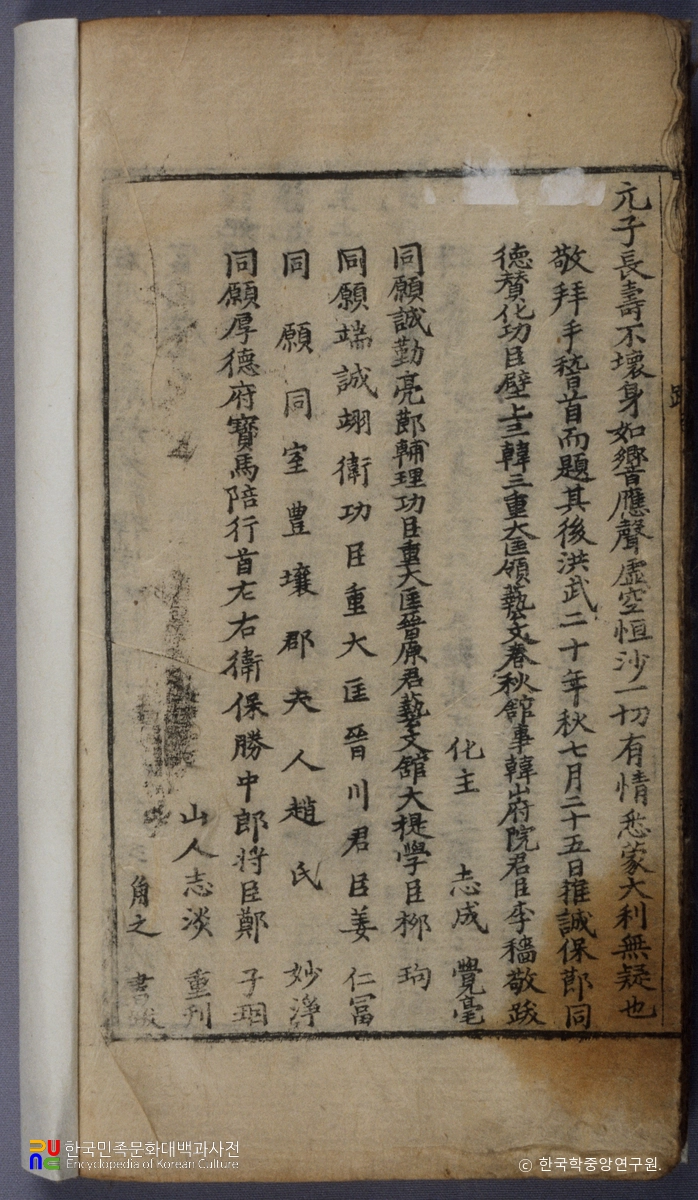 元子長壽不壞身如響應聲虛空恒沙一切有情悉蒙大利無疑也
敬拜手稽首而題其後洪武二十年秋七月二十五日推誠保節同
德贊化功臣壁上三韓三重大匡領藝文春秋館事韓山府院君臣李穡敬跋
化主 志成 覺毫
同願誠勤亮節輔理功臣重大匡晉原君藝文館大提學臣柳 珣
同願端誠翊衛功臣重大匡晉川君臣姜 仁冨
同願同室豊壤郡夫人趙氏 妙淨
同願厚德府寶馬陪行首左右衛保勝中郎將臣鄭 子
山人志淡 重刊
角之 書
한국민족문화대백과사전
Encyclopedia of Korean Culture
© 한국학중앙연구원.